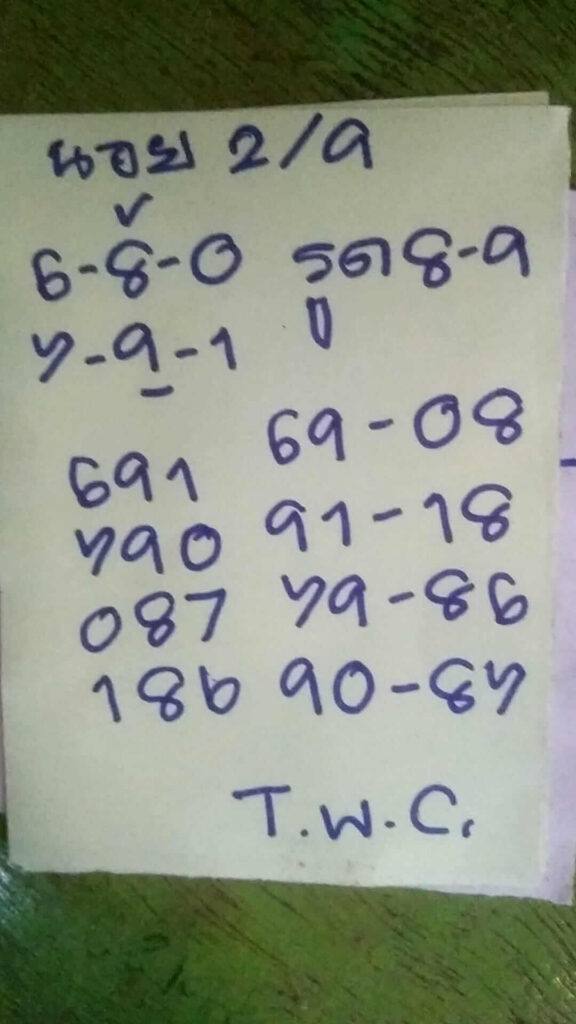 นอย 2/9
6-8-0 รูด 8-9
5-9-1
691 69-08
590 91-18
087 59-86
186 90-85
T.W.C.